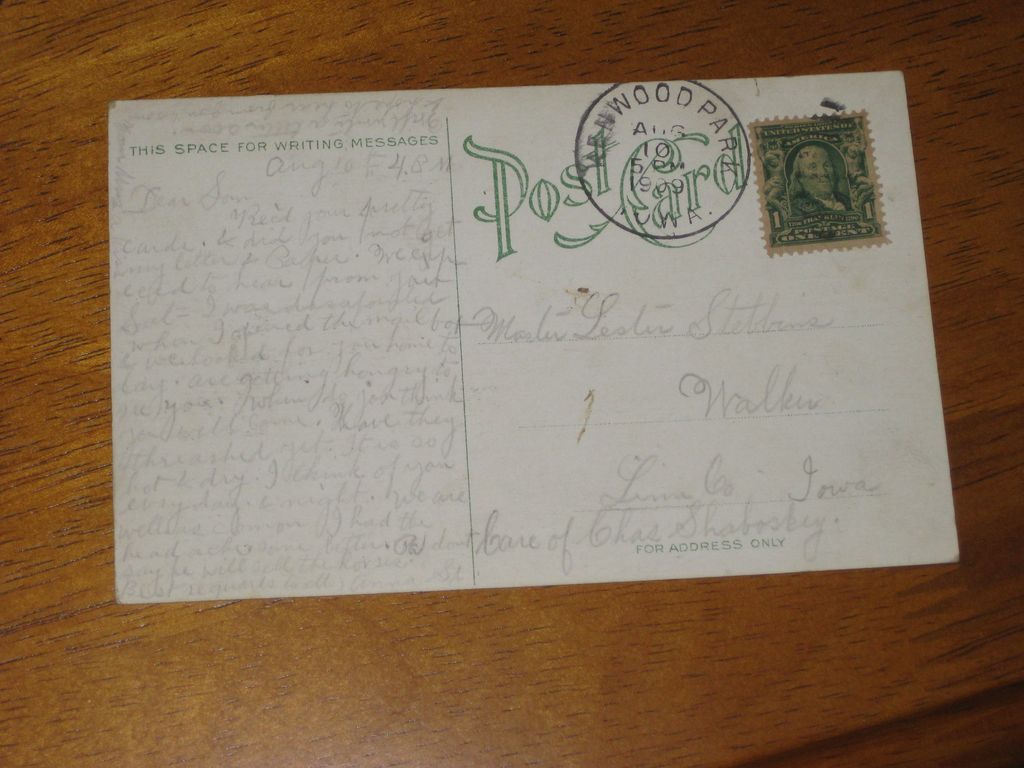 THIS SPACE FOR WRITING MESSAGES
Aug 10th
Dear Son
Recd your pretty
cards. & did you not get
my letter & Paper. We exp
ected to hear from you
Sat- I was disapointed
when I opened the mail box
& we looked for you home to
day. are getting hungry to
see you. when do you think
you will come. Have they
threashed yet. It is so
hot & dry. I think of you
everyday & night. We are
well as common I had the
head ache some better. Pa dont
say he will sell the horses.
Best regards to all. Anna St
Post Card
WOOD PARK
AUG
10
5 PM
1909
IOWA.
UNITED STATES OF
AMERICA
1 1
POSTAGE
ONE CENT
Master Lester Stebbins
Walker
Linn Co, Iowa
Care of Chas Shaboskey.
FOR ADDRESS ONLY